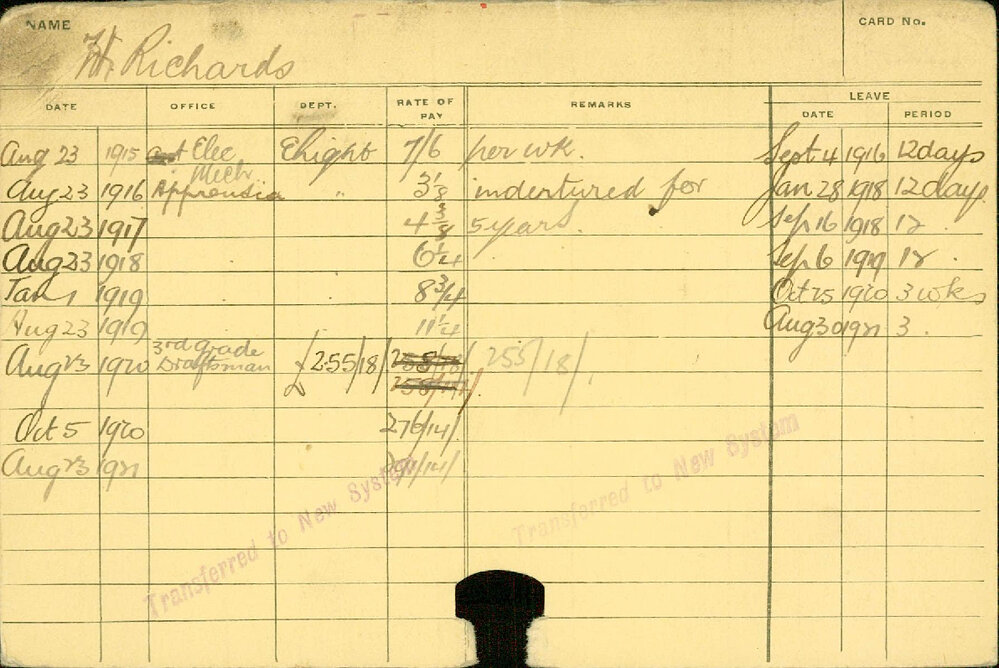 NAME
CARD No.
H. Richards
DATE OFFICE DEPT. RATE OF PAY REMARKS LEAVE
DATE PERIOD
Aug 23 1915 Elec Elight 7/6 per wk. Sept 4 1916 12 days
Mech
Aug 23 1916 " 3 1/8 indentured for Jan 28 1918 12 days
Aug 23 1917 4 3/8 5 years. Sep 16 1918 12
Aug 23 1918 6 1/4 Sep 6 1919 12
Jan 1 1919 8 3/4 Oct 25 1920 3 wks
Aug 23 1919 11 1/4 Aug 30 1921 3.
3rd grade
Aug 23 1920 Draftsman £255/18/ 255/18/
Oct 5 1920 276/14/
Aug 23 1921
Transferred to New System
Transferred to New System